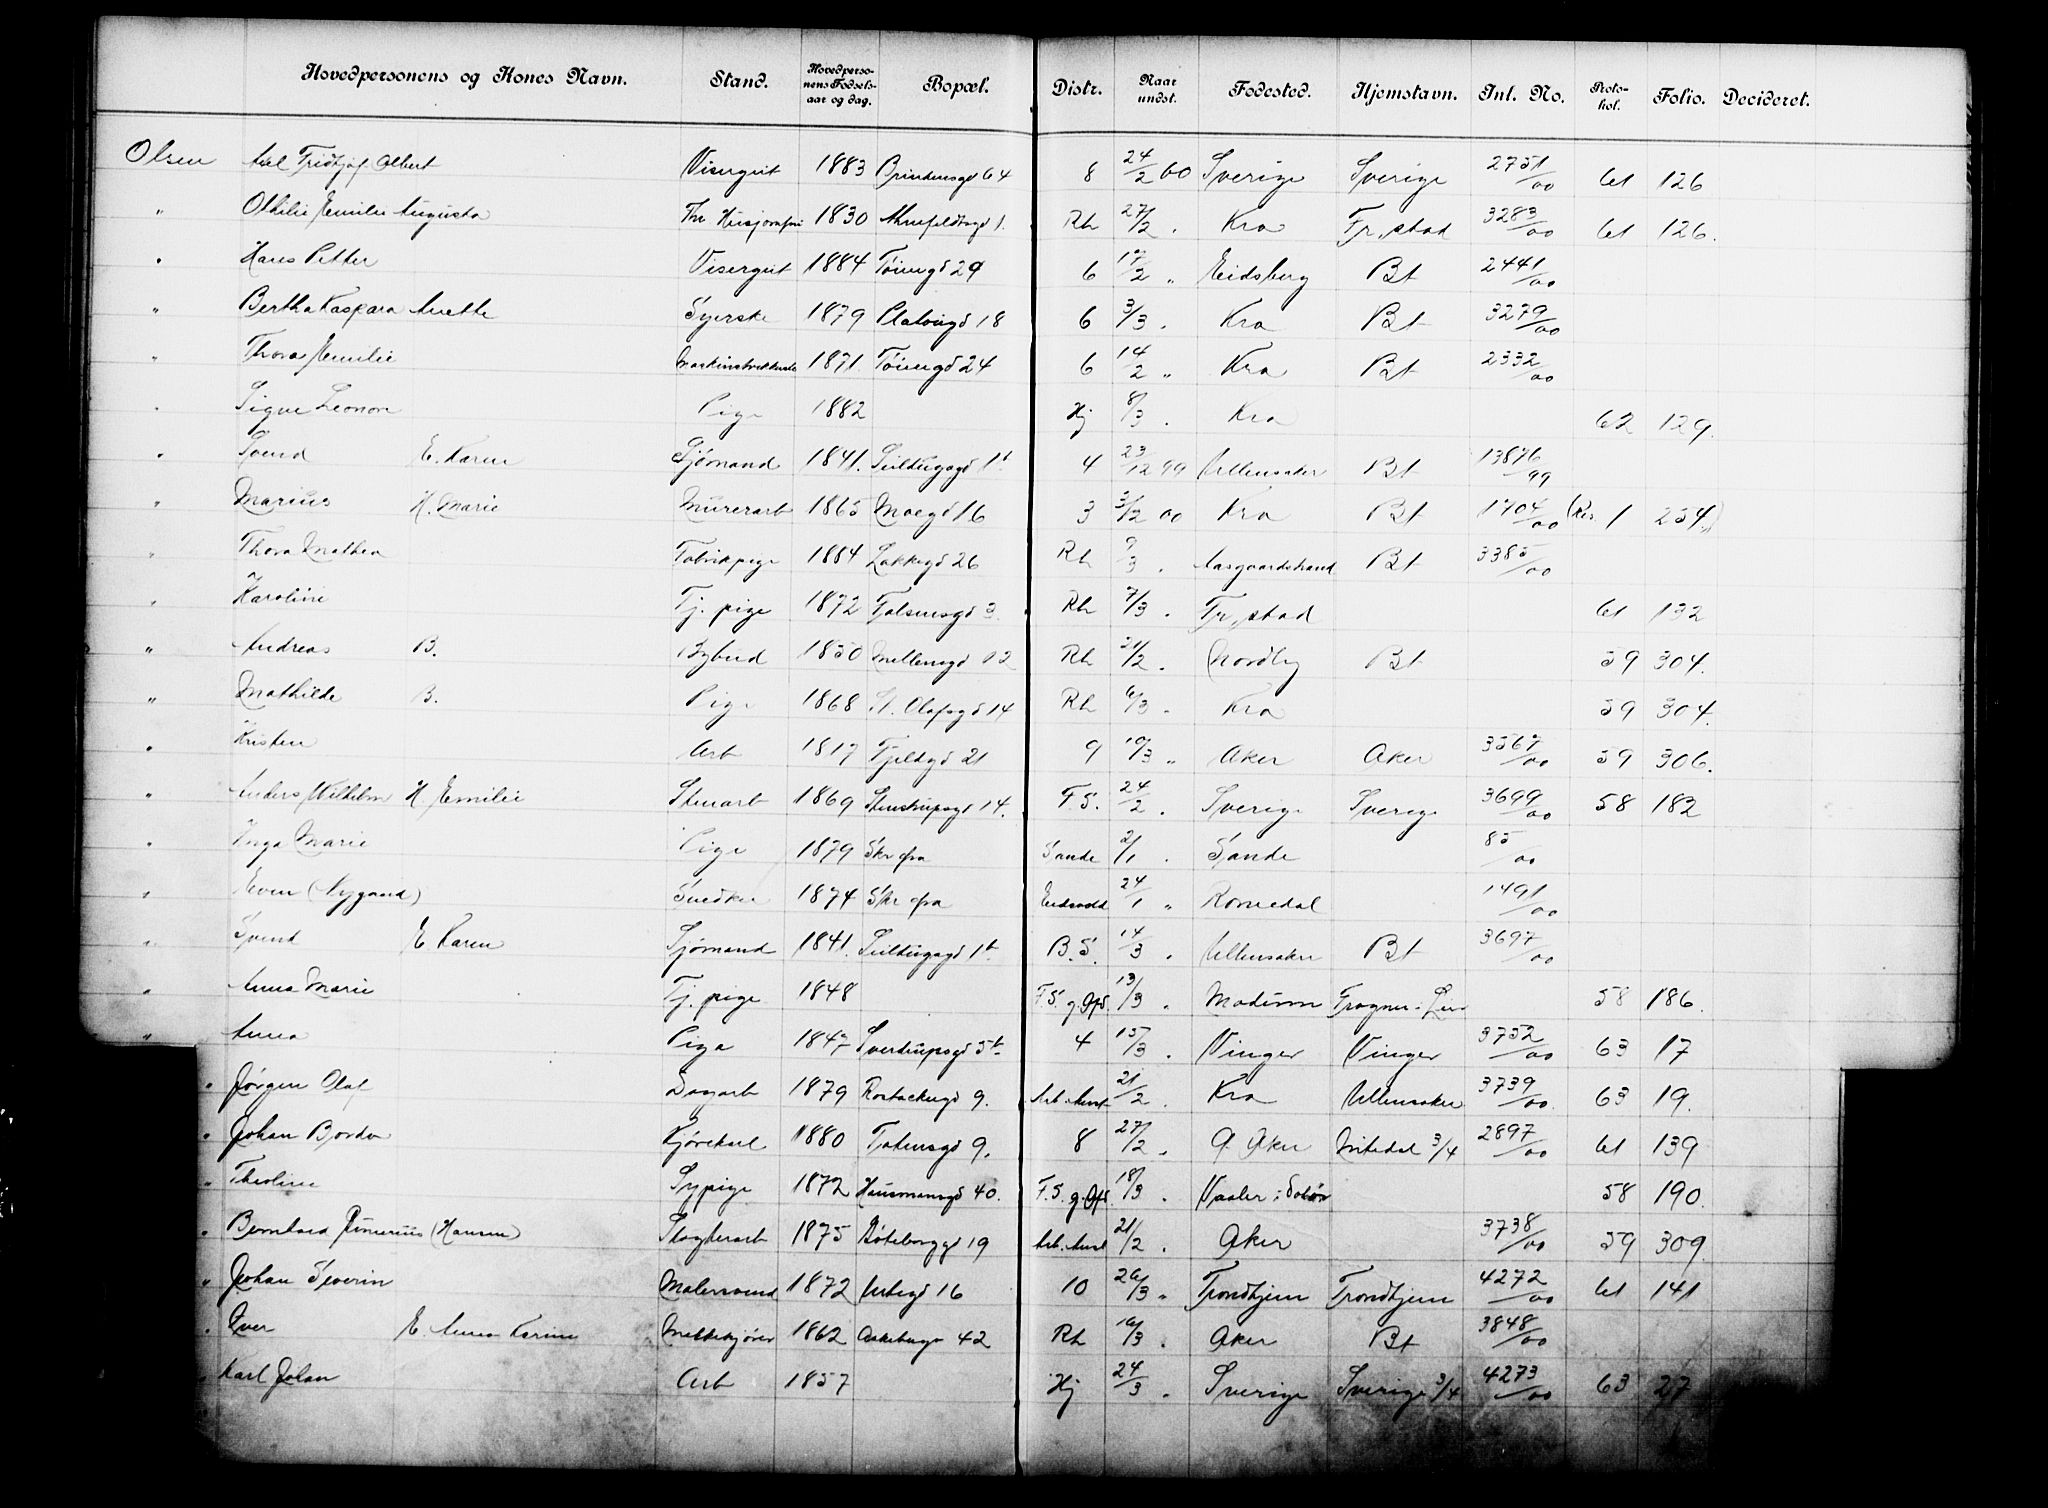 Hovedpersonens og Kones Navn. Stand. Hovedperso-nens Fødsels-aar og dag. Bopæl. Distr. Naar undst. Fødested. Hjemstavn. Inl. No. Proto-kol. Folio. Decideret.
Olsen Axel Fridtjof Albert Visergut 1883 64 8 24/2 00 Sverige Sverige 2751/00 61 126
" Othilie Emilie Augusta 1830 1. Rh 27/2 . Kra Fr.stad 3283/00 61 126.
" Hans Petter Visergut 1884 Tøiengd 29 6 17/2 " Eidsberg Bt 2441/00
" Bertha Kaspara Anette Syerske 1879 Platougd 18 6 3/3 . Kra Bt 3279/00
" Thora Emilie 1871 Tøiengd 24 6 14/2 " Kra Bt 2332/00
" Signe Leonore Pige 1882 Hj 8/3 . Kra 62 129.
" Svend E. Karen Sjømand 1841. 1b 4 23/12 99 Ullensaker Bt 13876/99
" Marius H. Marie Murerarb 1865 Moegd 16 3 3/12 00 Kra Bt 1704/00 1 254
" Thora Mathea Fabrikpige 1884 Lakkegd 26 Rh 9/3 . Aasgaardstrand Bt 3385/00
" Karoline Tj. pige 1872 3 Rh 7/3 . Fr.stad 61 132
" Andreas B. Bybud 1850 Møllergd 12 Rh 21/2 . Nordby Bt 59 304.
" Mathilde B. Pige 1868 St. Olafsgd 14 Rh 6/3 . Kra 59 304.
" Kristen Arb 1817 Fjeldgd 21 9 10/3 " Aker Aker 3567/00 59 306.
" Anders Wilhelm H. Emilie Stenarb 1869 Stenstrupsgd 14. F.S. 24/2 . Sverige Sverige 3699/00 58 182
" Inga Marie Pige 1879 Skr fra Sande 2/1 . Sande 85/00
" Even (Nygaard) Snedker 1874 Skr fra Eidsvold 24/1 " Romedal 1491/00
" Svend E Karen Sjømand 1841. 1b B.S. 14/3 . Ullensaker Bt 3697/00
" Anna Marie Tj. pige 1848 F.S. g. Ofs. 13/3 " Modum Fragner i Lier 58 186.
" Anna Pige 1847 Sverdrupsgd 5b 4 15/3 . Vinger Vinger 3752/00 63 17
" Jørgen Olaf Dagarb 1879 Rostockergd 9. Arb. Anst 21/2 . Kra Ullensaker 3739/00 63 19.
" Johan Kjørekarl 1880 Totensgd 9. 8 27/2 . Ø. Aker Nitedal 3/4 2897/00 61 139
" Theoline Sypige 1872 Hausmansgd 40. F.S. g. Ofs. 18/3 . Vaaler i Solør 58 190.
" Bernhard (Hansen) Slagterarb 1875 Gøteborggd 19 Arb. Anst 21/2 . Aker 3738/00 59 309.
" Johan Severin Malersvend 1872 Urtegd 16 10 26/3 " Trondhjem Trondhjem 4272/00 61 141
" Iver E. Anna Karine Melkekjører 1862 42 Rh 16/3 . Aker Bt 3848/00
" Karl Johan Arb 1857 Hj 24/3 . Sverige Sverige 3/4 4273/00 63 27